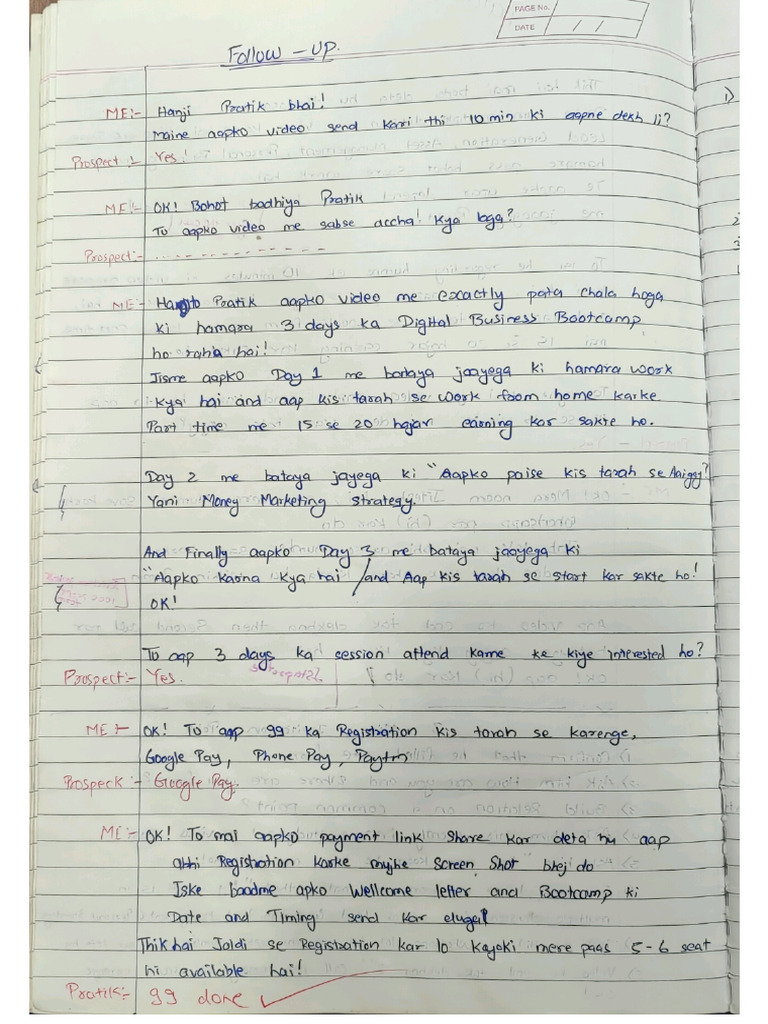 PAGE No.
DATE / /
Follow-UP.
ME:- Hanji Pratik bhai!
Maine aapko video send kari thi 10 min ki aapne dekh li?
Prospect:- Yes!
ME:- OK! Bohot badhiya Pratik
To aapko video me sabse accha! Kya laga?
Prospect:- . - - - - - - - - - - - -
ME:- Ha to Pratik aapko video me exactly pata chala hoga
ki hamara 3 days ka Digital Business Bootcamp
ho raha hai!
Jisme aapko Day 1 me bataya jaayega ki hamara work
Kya hai and aap kis tarah se work from home karke
Part time me 15 se 20 hajar earning kar sakte ho.
Day 2 me bataya jayega ki "Aapko paise kis tarah se Aaigey?
Yani - Money Marketing strategy.
And Finally aapko Day 3 me bataya jaayega ki
"Aapko karna Kya hai / and Aap kis tarah se start kar sakte ho!
OK!
To aap 3 days ka session attend karne ke kiye interested ho?
Prospect:- Yes.
ME:- OK! To aap 99 ka Registration kis tarah se karenge,
Google Pay, Phone Pay, Paytm
Prospeck:- Google Pay.
ME:- OK! To mai aapko payment link Share kar deta hu aap
abhi Registration karke mujhe Screen Shot bhej do
Iske baadme apko Wellcome letter and Bootcamp ki
Date and Timing send kar duga!
Thik hai Jaldi se Registration kar lo kayoki mere paas 5-6 seat
hi available hai!
Pratik:- 99 done ✓
1)